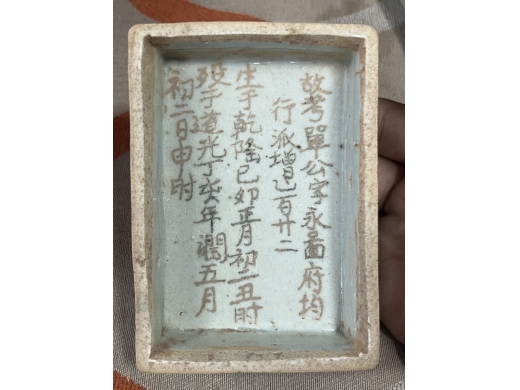 故考單公字永啚府均
行派增百廿二
生于乾隆已卯正月初二丑时
殁于道光丁亥年潤五月
初二日申时